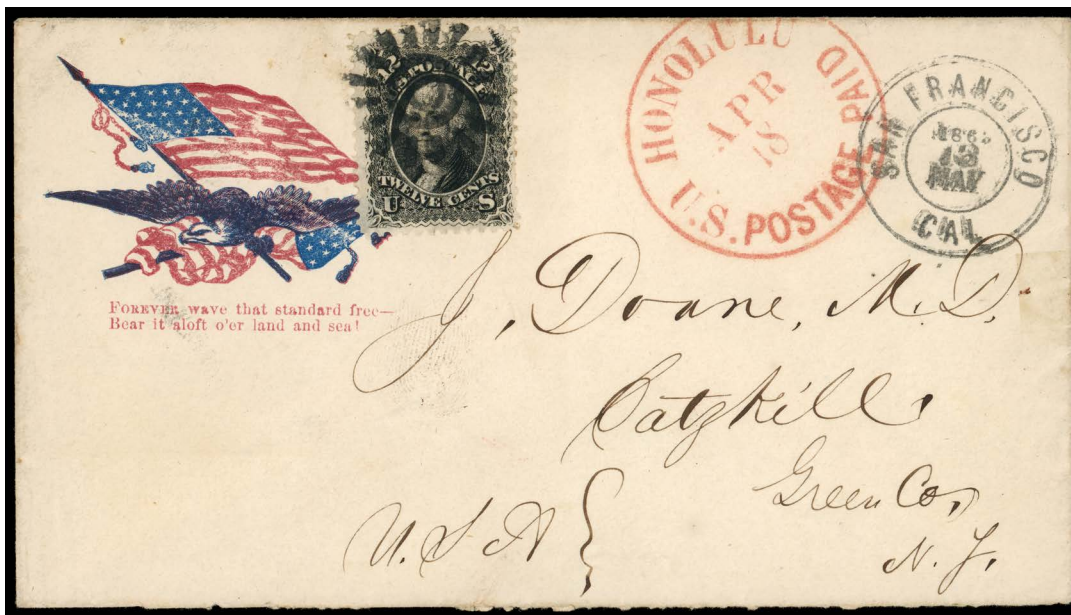 12 12
U.S. POSTAGE
TWELVE CENTS
U S
HONOLULU
APR
18
U.S. POSTAGE PAID
SAN FRANCISCO
MAY
CAL
FOREVER wave that standard free—
Bear it aloft o'er land and sea!
J. Doane, M.D.
Catzkill,
Green Co,
N.Y.
U.S A